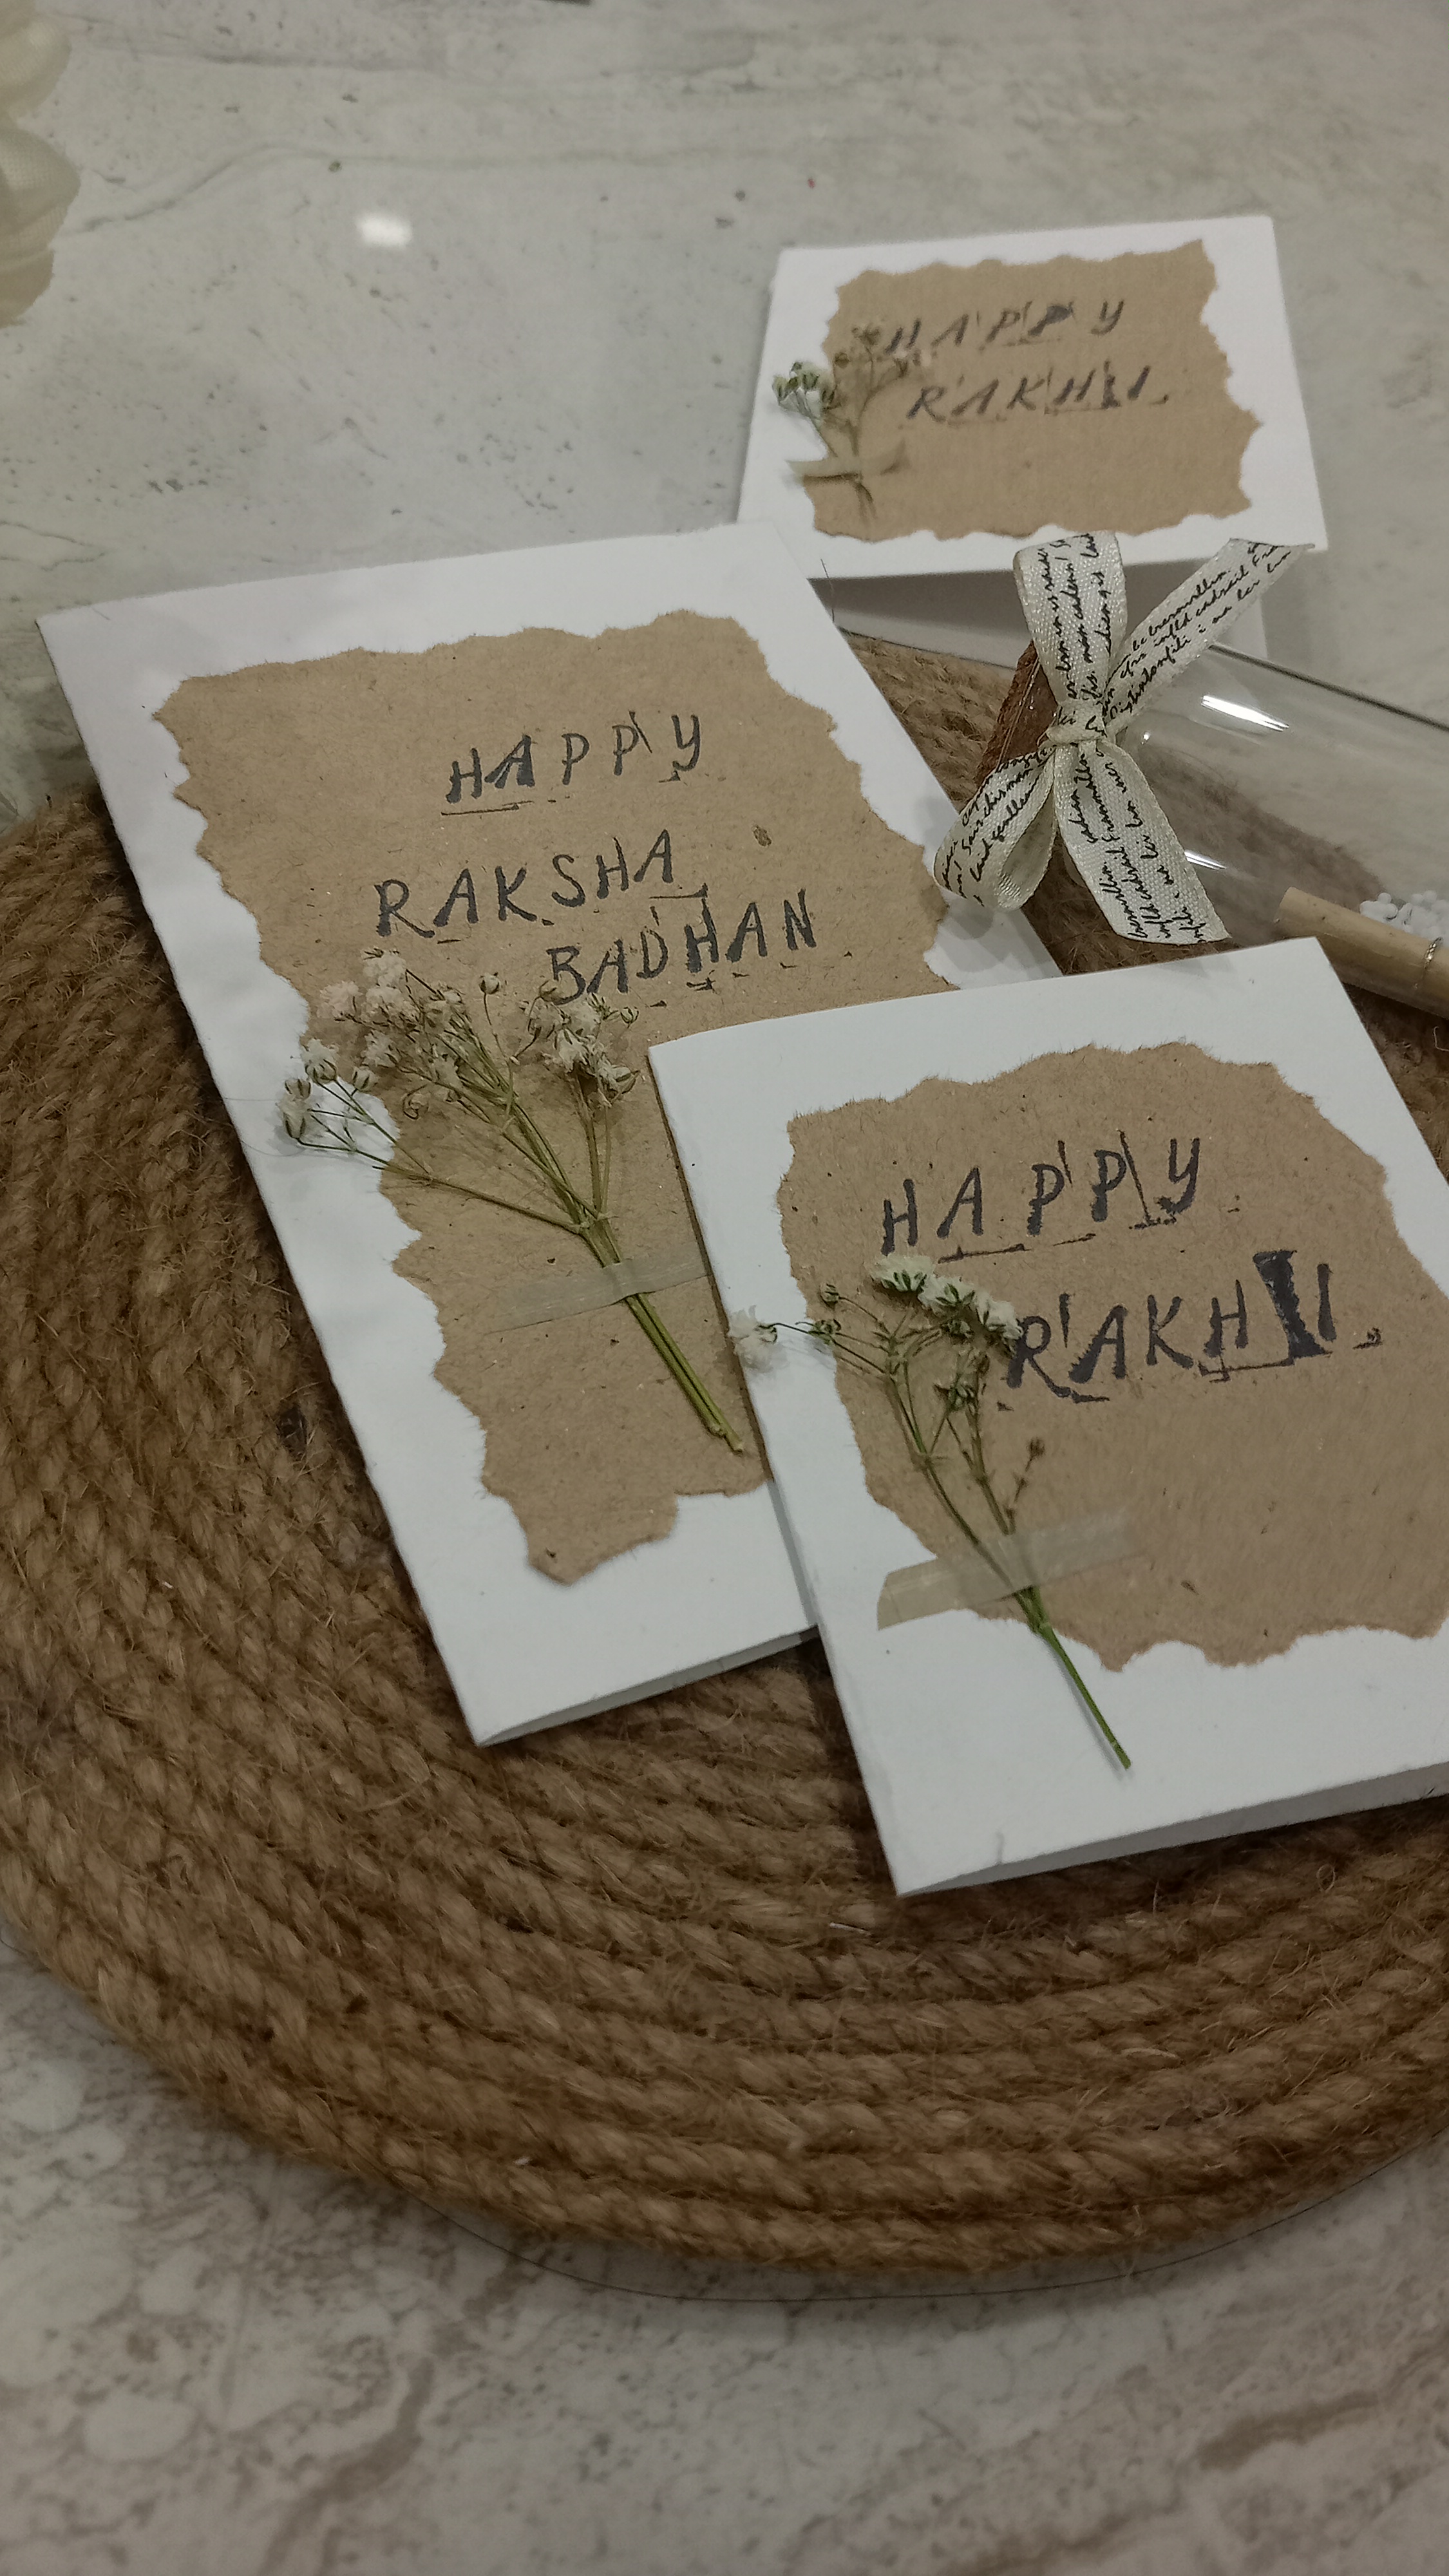 HAPPY
RAKHI
HAPPY
RAKSHA
BADHAN
HAPPY
RAKHI